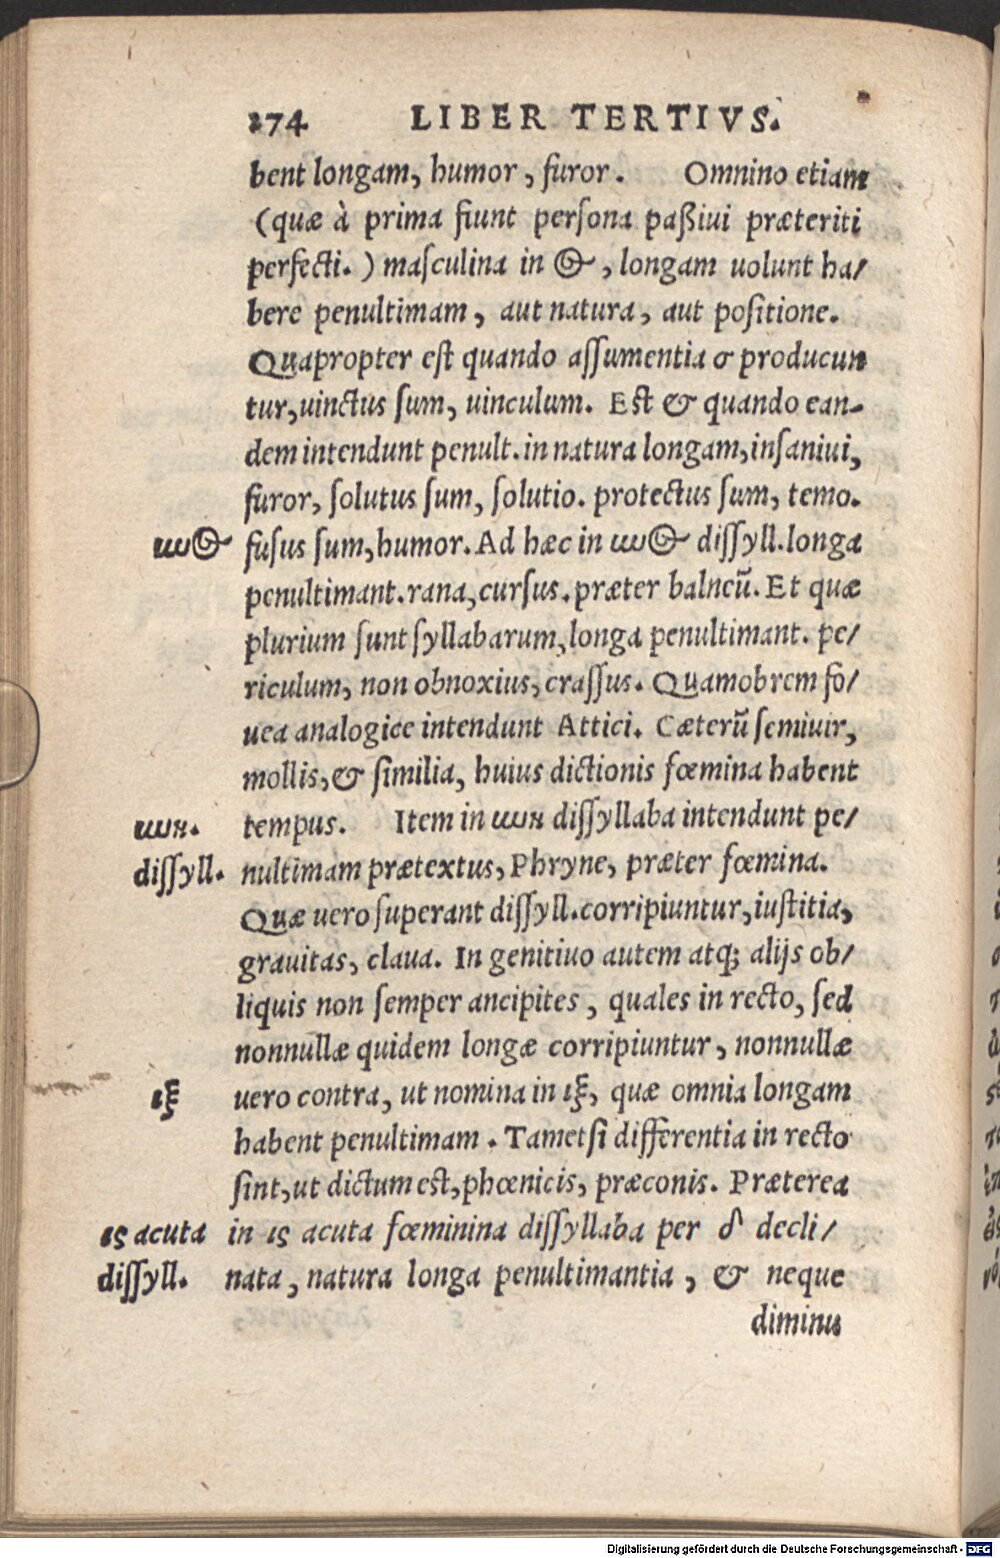 274 LIBER TERTIVS.
bent longam, humor, furor. Omnino etiam
(quæ à prima fiunt persona paßiui præteriti
perfecti.) masculina in ος, longam uolunt ha/
bere penultimam, aut natura, aut positione.
Quapropter est quando assumentia σ producun
tur, uinctus sum, uinculum. Est & quando ean-
dem intendunt penult. in natura longam, insaniui,
furor, solutus sum, solutio. protectus sum, temo.
μος fusus sum, humor. Ad hæc in μος dissyll. longa
penultimant. rana, cursus. præter balneū. Et quæ
plurium sunt syllabarum, longa penultimant. pe/
riculum, non obnoxius, crassus. Quamobrem fo/
uea analogice intendunt Attici. Cæterū semiuir,
mollis, & similia, huius dictionis fœmina habent
μων. tempus. Item in μων dissyllaba intendunt pe/
dissyll. nultimam prætextus, Phryne, præter fœmina.
Quæ uero superant dissyll. corripiuntur, iustitia,
grauitas, claua. In genitiuo autem atq; alijs ob/
liquis non semper ancipites, quales in recto, sed
nonnullæ quidem longæ corripiuntur, nonnullæ
ιξ uero contra, ut nomina in ιξ, quæ omnia longam
habent penultimam. Tametsi differentia in recto
sint, ut dictum est, phœnicis, præconis. Præterea
ις acuta in ις acuta fœminina dissyllaba per δ decli/
dissyll. nata, natura longa penultimantia, & neque
diminu
Digitalisierung gefördert durch die Deutsche Forschungsgemeinschaft - DFG